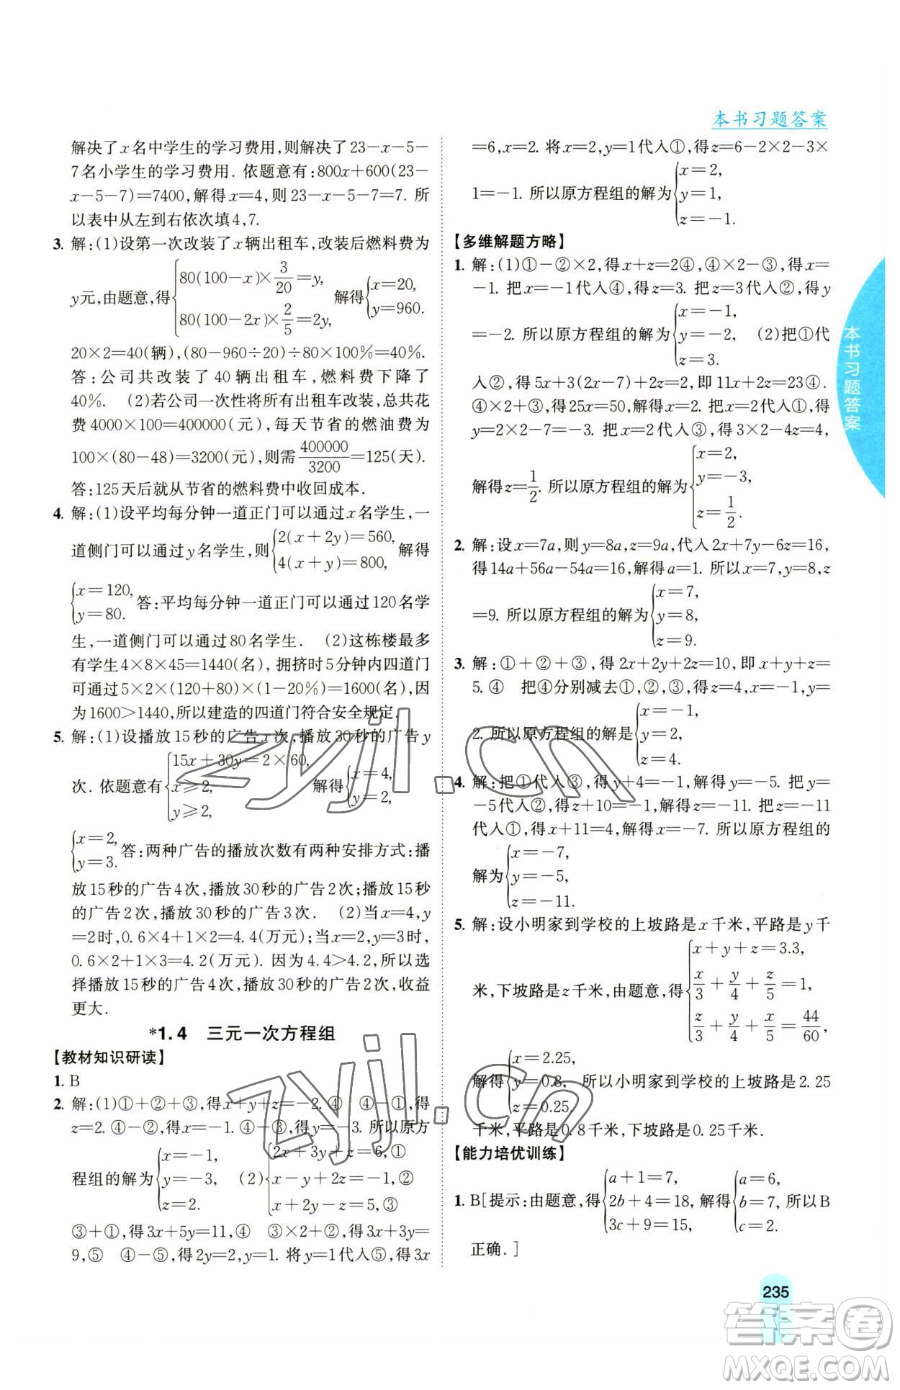 本书习题答案
解决了x名中学生的学习费用,则解决了23-x-5-
7名小学生的学习费用. 依题意有:800x+600(23-
x-5-7)=7400,解得x=4,则23-x-5-7=7. 所
以表中从左到右依次填4,7.
3. 解:(1)设第一次改装了x辆出租车,改装后燃料费为
y元,由题意,得{80(100-x)×3/20=y, 80(100-2x)×2/5=2y, 解得{x=20, y=960.
20×2=40(辆),(80-960÷20)÷80×100%=40%.
答:公司共改装了40辆出租车,燃料费下降了
40%. (2)若公司一次性将所有出租车改装,总共花
费4000×100=400000(元),每天节省的燃油费为
100×(80-48)=3200(元),则需400000/3200=125(天).
答:125天后就从节省的燃料费中收回成本.
4. 解:(1)设平均每分钟一道正门可以通过x名学生,一
道侧门可以通过y名学生,则{2(x+2y)=560, 4(x+y)=800, 解得
{x=120, y=80. 答:平均每分钟一道正门可以通过120名学
生,一道侧门可以通过80名学生. (2)这栋楼最多
有学生4×8×45=1440(名),拥挤时5分钟内四道门
可通过5×2×(120+80)×(1-20%)=1600(名),因
为1600>1440,所以建造的四道门符合安全规定.
5. 解:(1)设播放15秒的广告x次,播放30秒的广告y
次. 依题意有{15x+30y=2×60, x≥2, y≥2, 解得{x=4, y=2,
{x=2, y=3. 答:两种广告的播放次数有两种安排方式:播
放15秒的广告4次,播放30秒的广告2次;播放15
秒的广告2次,播放30秒的广告3次. (2)当x=4,y
=2时,0.6×4+1×2=4.4(万元);当x=2,y=3时,
0.6×2+1×3=4.2(万元). 因为4.4>4.2,所以选
择播放15秒的广告4次,播放30秒的广告2次,收益
更大.
*1.4 三元一次方程组
【教材知识研读】
1. B
2. 解:(1)①+②+③,得x+y+z=-2. ④ ④-①,得
z=2. ④-②,得x=-1. ④-③,得y=-3. 所以原方
程组的解为{x=-1, y=-3, z=2. (2){2x+3y+z=6,① x-y+2z=-1,② x+2y-z=5,③
③+①,得3x+5y=11,④ ③×2+②,得3x+3y=
9,⑤ ④-⑤得2y=2,y=1. 将y=1代入⑤,得3x
=6,x=2. 将x=2,y=1代入①,得z=6-2×2-3×
1=-1. 所以原方程组的解为{x=2, y=1, z=-1.
【多维解题方略】
1. 解:(1)①-②×2,得x+z=2④,④×2-③,得x=
-1. 把x=-1代入④,得z=3. 把x=-1代入②,得y
=-2. 所以原方程组的解为{x=-1, y=-2, z=3. (2)把①代
入②,得5x+3(2x-7)+2z=2,即11x+2z=23④.
④×2+③,得25x=50,解得x=2. 把x=2代入①,得
y=2×2-7=-3. 把x=2代入③,得3×2-4z=4,
解得z=1/2. 所以原方程组的解为{x=2, y=-3, z=1/2.
2. 解:设x=7a,则y=8a,z=9a,代入2x+7y-6z=16,
得14a+56a-54a=16,解得a=1,所以x=7,y=8,z
=9. 所以原方程组的解为{x=7, y=8, z=9.
3. 解:①+②+③,得2x+2y+2z=10,即x+y+z=
5. ④ 把④分别减去①,②,③,得z=4,x=-1,y=
2. 所以原方程组的解为{x=-1, y=2, z=4.
4. 解:把①代入③,得y+4=-1,解得y=-5. 把y=
-5代入②,得z+10=-1,解得z=-11. 把z=-11
代入①,得x+11=4,解得x=-7. 所以原方程组的
解为{x=-7, y=-5, z=-11.
5. 解:设小明家到学校的上坡路是x千米,平路是y千
米,下坡路是z千米. 由题意,得{x+y+z=3.3, x/3+y/4+z/5=1, z/3+y/4+x/5=44/60,
解得{x=2.25, y=0.8, z=0.25. 所以小明家到学校的上坡路是2.25
千米,平路是0.8千米,下坡路是0.25千米.
【能力培优训练】
1. B[提示:由题意,得{a+1=7, 2b+4=18, 3c+9=15, 解得{a=6, b=7, c=2. 所以B
正确.]
本书习题答案
235
zyjl.cn
zyjl.cn
答案圈
MXQE.COM